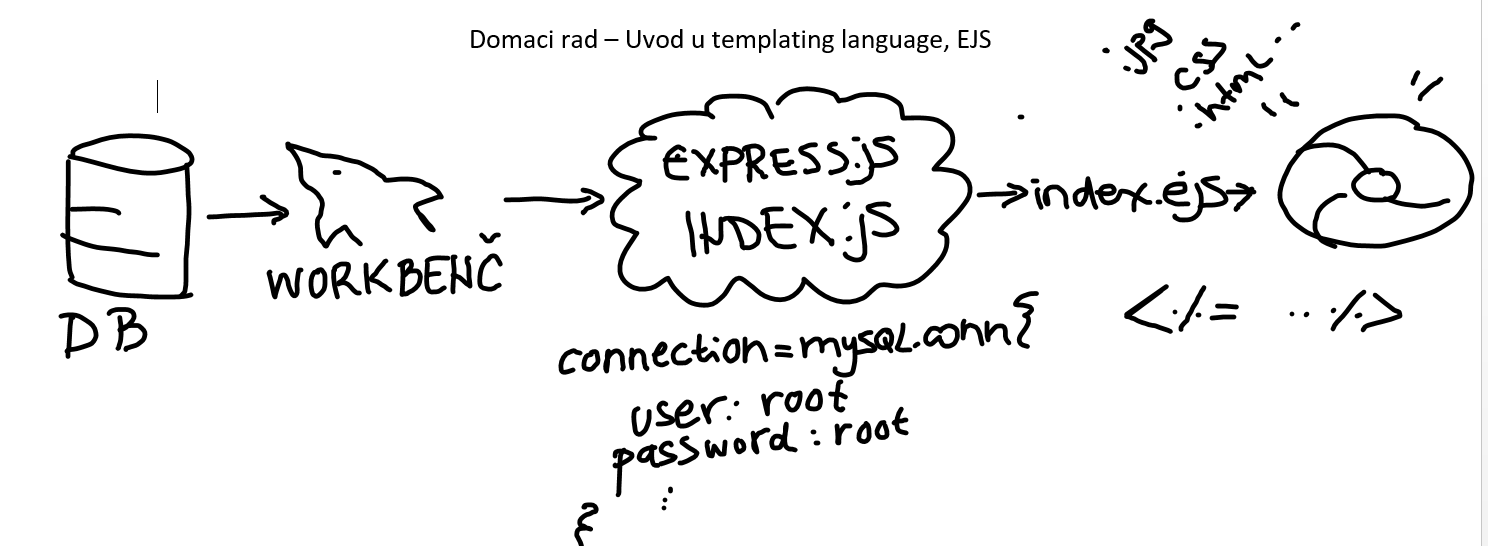 Domaci rad – Uvod u templating language, EJS
.jpg
css
.html
EXPRESS.js
INDEX.js
index.ejs
WORKBENČ
DB
<%= .. %>
connection=mysQL.conn{
user: root
password: root
⋮
{